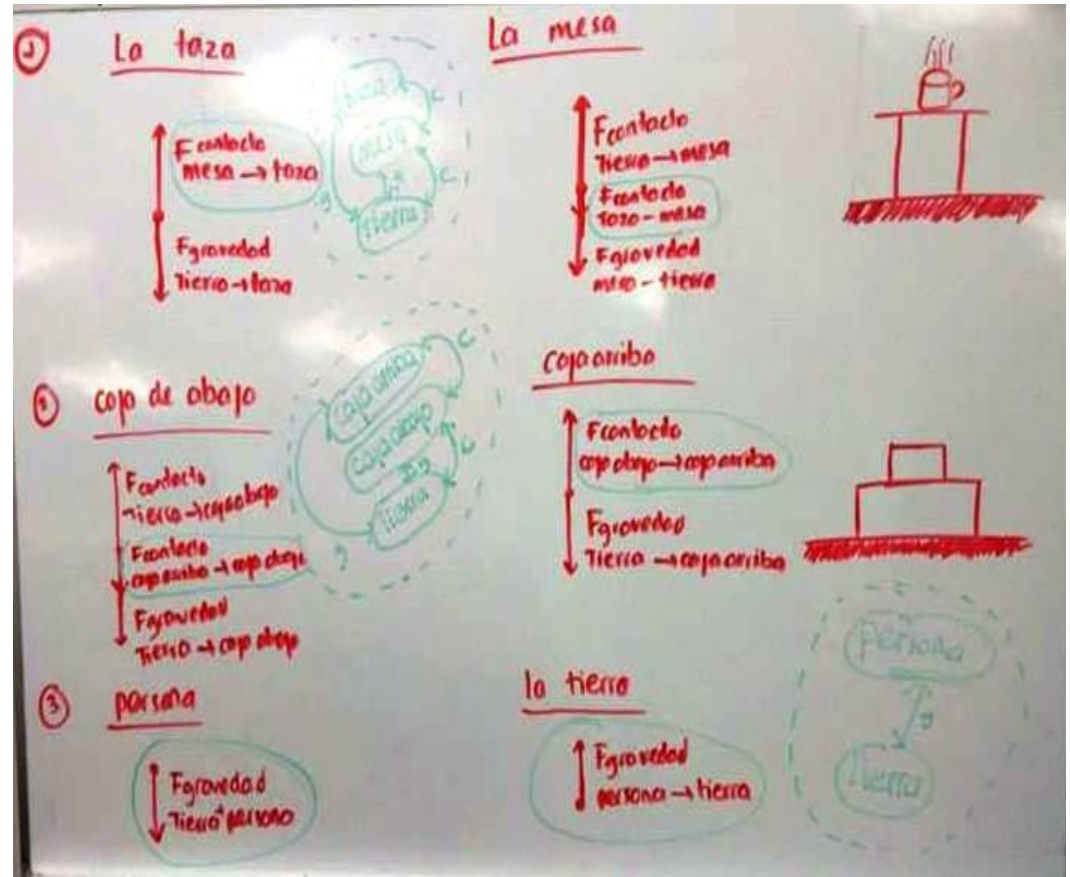 ①
La taza
Fcontacto
mesa → taza
Fgravedad
Tierra → taza
taza
mesa
tierra
g
c
c
g
La mesa
Fcontacto
Tierra → mesa
Fcontacto
taza - mesa
Fgravedad
mesa - tierra
②
caja de abajo
Fcontacto
Tierra → caja abajo
Fcontacto
caja arriba → caja abajo
Fgravedad
Tierra → caja abajo
caja arriba
caja abajo
tierra
c
c
g
g
caja arriba
Fcontacto
caja abajo → caja arriba
Fgravedad
Tierra → caja arriba
③
persona
Fgravedad
Tierra → persona
la tierra
Fgravedad
persona → tierra
persona
g
Tierra